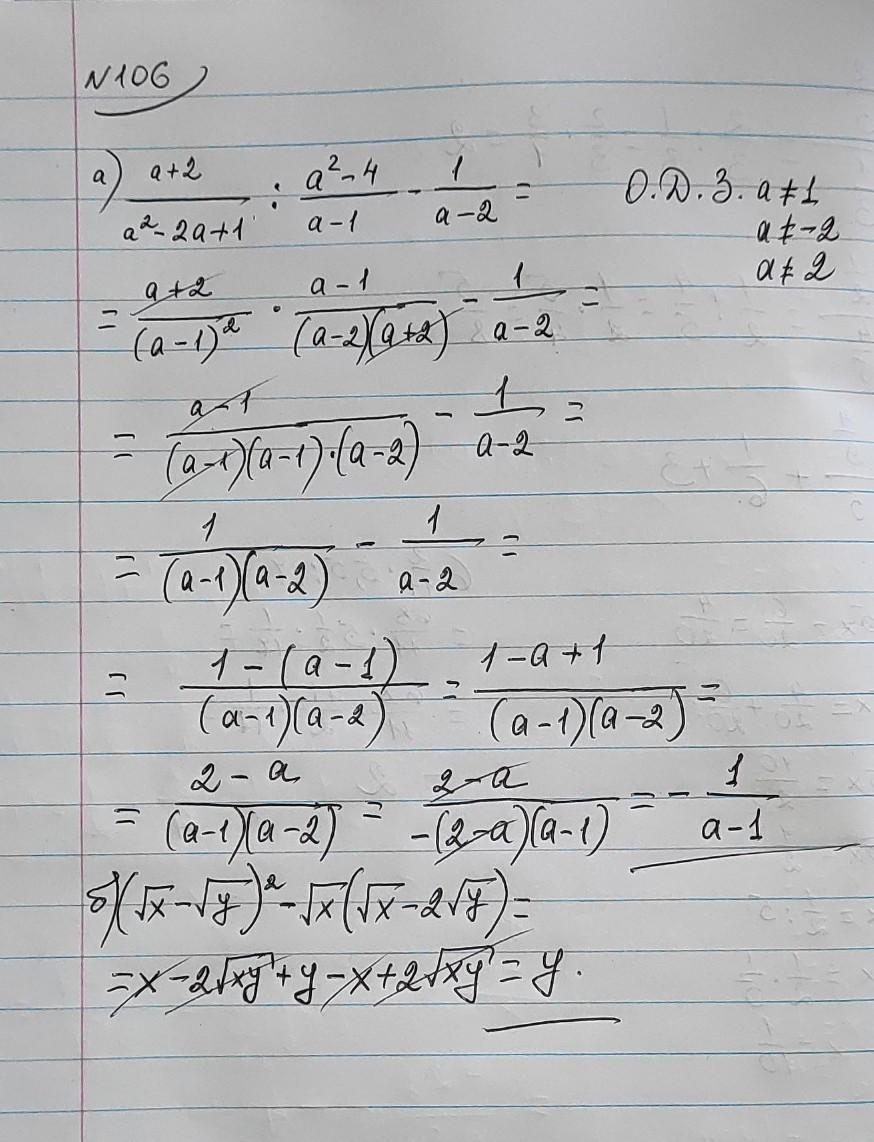 N106
а) (a+2)/(a²-2a+1) : (a²-4)/(a-1) - 1/(a-2) = О.Д.З. a≠1
a≠-2
a≠2
= (a+2)/(a-1)² · (a-1)/((a-2)(a+2)) - 1/(a-2) =
= (a-1)/((a-1)(a-1)·(a-2)) - 1/(a-2) =
= 1/((a-1)(a-2)) - 1/(a-2) =
= (1-(a-1))/((a-1)(a-2)) = (1-a+1)/((a-1)(a-2)) =
= (2-a)/((a-1)(a-2)) = (2-a)/(-(2-a)(a-1)) = - 1/(a-1)
б) (√x-√y)² - √x(√x-2√y) =
= x-2√xy+y-x+2√xy = y.